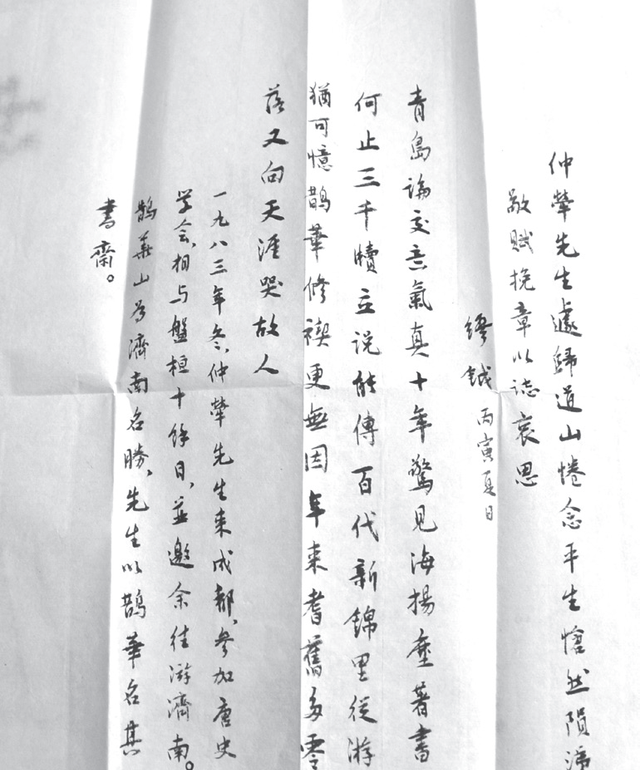 仲犖先生遽歸道山惓念平生愴然隕涕
敬賦挽章以誌哀思
繆鉞 丙寅夏日
青島論交意氣真十年驚見海揚塵著書
何止三千牘立說能傳百代新錦里從游
猶可憶鵲華修禊更無因年來耆舊多零
落又向天涯哭故人
一九八三年冬,仲犖先生来成都,参加唐史
学会,相与盤桓十餘日,並邀余往游濟南。
鵲華山为濟南名勝,先生以鵲華名其
書齋。